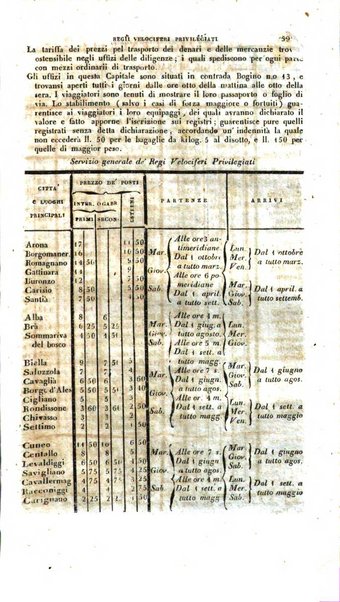 REGJ VELOCIFERI PRIVILEGIATI
La tariffa dei prezzi pel trasporto dei denari e delle mercanzie
ostensibile negli uffizi delle diligenze; i quali spediscono per ogni
con mezzi ordinarii di trasporto.
Gli uffizi in questa Capitale sono situati in contrada Bogino n.o 13, e
trovansi aperti tutti i giorni dalle ore otto della mattina alle otto della
sera. I viaggiatori sono tenuti di mostrare il loro passaporto o foglio di
via. Lo stabilimento (salvo i casi di forza maggiore o fortuiti)
rentisce ai viaggiatori i loro equipaggi, dei quali avranno dichiarato il
valore e fatto apporre l'iscrizione sui registri; guarentisce pure quelli
registrati senza detta dichiarazione, accordando un'indennità la quale
non eccederà ll. 50 per le bagaglie da kilog. 5 al disotto, e ll. 150 per
quelle di maggior peso.
Servizio generale de' Regi Velociferi Privilegiati
CITTA' e LUOGHI PRINCIPALI | PREZZO DE' POSTI | PARTENZE | ARRIVI
INTER. O GABR. | ESTERNI
PRIMI | SECON.
Arona 17 11 50
Borgomaner. 16
Romagnano 14 50
Gattinara
Buronzo 12
Carisio 8 50 5 50
Santià 7 50 4 50
Mar. Giov. Sab. | Alle ore 3 antimeridiane Dal 1 ottobre a tutto marz. Alle ore 6 pomeridiane Dal 1 april. a tutto sett. | Lun. Mer. Ven. | Dal 1 ottobre a tutto marz. Giov. Sab. Dal 1 april. a tutto settemb.
Alba 8 6
Brà 6 25 5 25
Sommariva del bosco
Mar. Giov. Sab. | Alle ore 4 m. Dal 1 giug. a tutto agos. Alle ore 5 m. Dal 1 sett. a tutto magg. | Lun. Mer. Sab.
Biella 9 7 51
Saluzzola 7
Cavaglià 6 50 5 50 3 60
Borg. d'Ales. 5 50
Cigliano 5
Rondissone 3 60 3 60 2 50
Chivasso 3
Settimo 2
Mar. Giov. Sab. | Alle ore 7 s. Dal 1 giugn. a tutto agos. Alle ore 4 m. Dal 1 sett. a tutto magg. | Lun. Mer. Giov. | Dal 1 giugno a tutto agos. Dal 1 sett. a tutto maggio
Cuneo 14 50 10
Centallo 8
Levaldiggi 6 50
Savigliano 5 75 5 75
Cavallermag. 4 75
Racconiggi 4
Carignano 2 25
Mar. Giov. Sab. | Alle ore 7 s. Dal 1 giugn. a tutto agos. Alle ore 4 m. Dal 1 sett. a tutto magg. | Mar. Giov. Lun. Mer. Sab. | Dal 1 giugno a tutto agos. Dal 1 sett. a tutto maggio